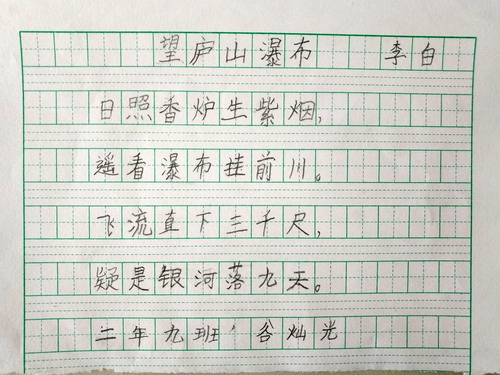 望庐山瀑布 李白
日照香炉生紫烟,
遥看瀑布挂前川。
飞流直下三千尺,
疑是银河落九天。
二年九班 谷灿光